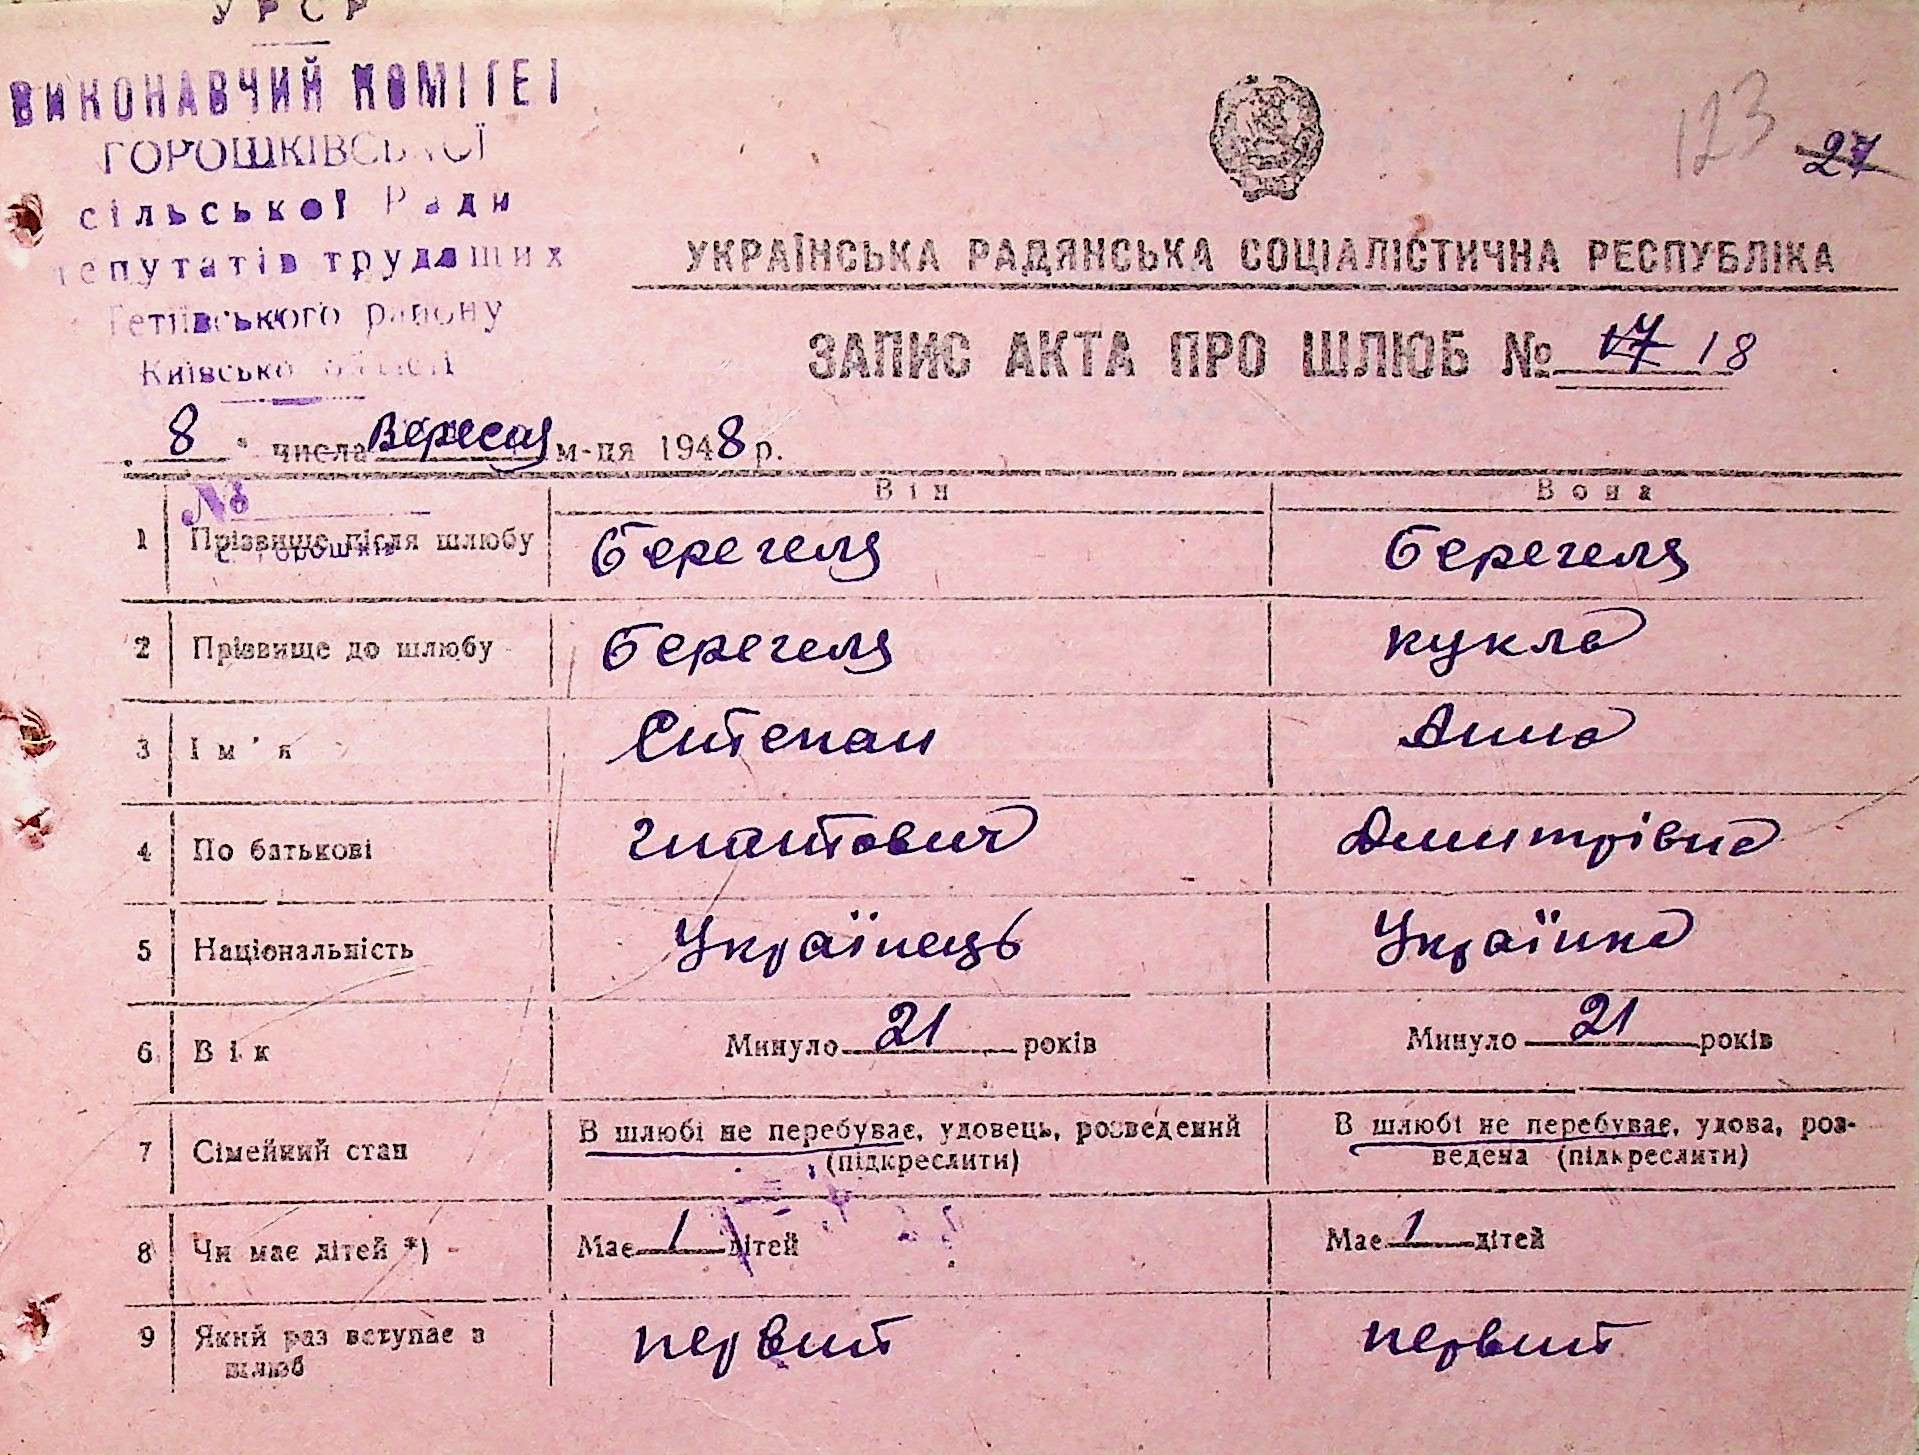 УРСР
ВИКОНАВЧИЙ КОМІТЕТ
ГОРОШКІВСЬКОЇ
сільської Ради
депутатів трудящих
Тетіївського району
Київської області
123 27
УКРАЇНСЬКА РАДЯНСЬКА СОЦІАЛІСТИЧНА РЕСПУБЛІКА
ЗАПИС АКТА ПРО ШЛЮБ № 17 18
"8" числа Вересня м-ця 1948 р.
№
с. Горошків
Він Вона
1 Прізвище після шлюбу Берегеля Берегеля
2 Прізвище до шлюбу Берегеля кукла
3 Ім'я Степан Анна
4 По батькові гнатович Дмитрівна
5 Національність Українець Українка
6 Вік Минуло 21 років Минуло 21 років
7 Сімейний стан В шлюбі не перебуває, удовець, розведений В шлюбі не перебуває, удова, роз-
(підкреслити) ведена (підкреслити)
8 Чи має дітей *) Має 1 дітей Має 1 дітей
9 Який раз вступає в первит первит
шлюб